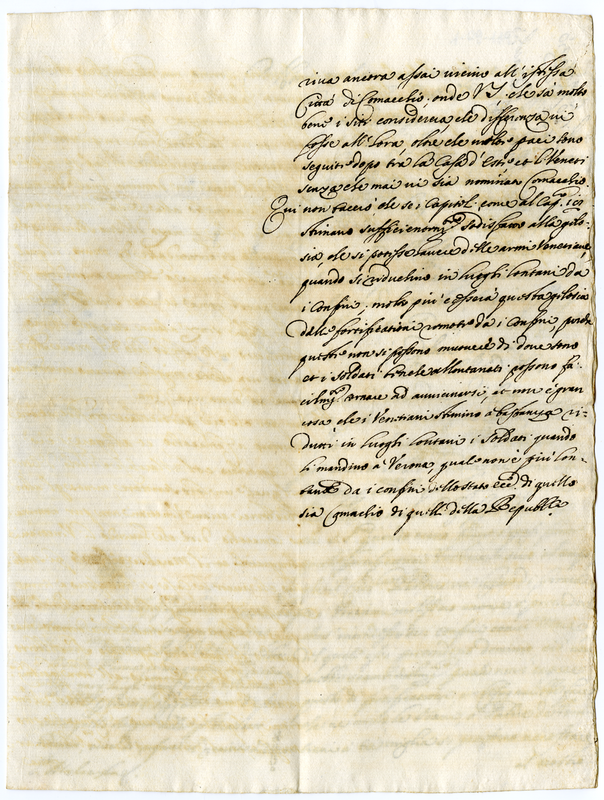 riva ancora assai vicino all' istessa
Città di Comacchio, onde V.S. che sà molto
bene i siti consideri che differenza vi
fosse all' hora, oltre che molte paci sono
seguite dopo tra la Casa d' Este et li Veneti
senza che mai vi sia nominato Comacchio.
Qui non taccio, che se i Capitoli come al Cap.
stimano sufficientem.te sodisfatto alla gelo-
sia, che si potesse havere delle armi Veneziane,
quando si riduchino in luoghi lontani da
i confini, molto più cesserà questa gelosia
dalle fortificationi remote da i confini, perche
queste non si possono muovere di dove sono
et i soldati benche allontanati possono fa-
cilm.te tornare ad avvicinarsi, et non è gran
cosa, che i Venetiani stimino à bastanza ri-
dutti in luoghi lontani i soldati quando
li mandino à Verona, qual non è più lon-
tana da i confini dello stato Ecc. di quello
sia Comachio di quelli della Republica